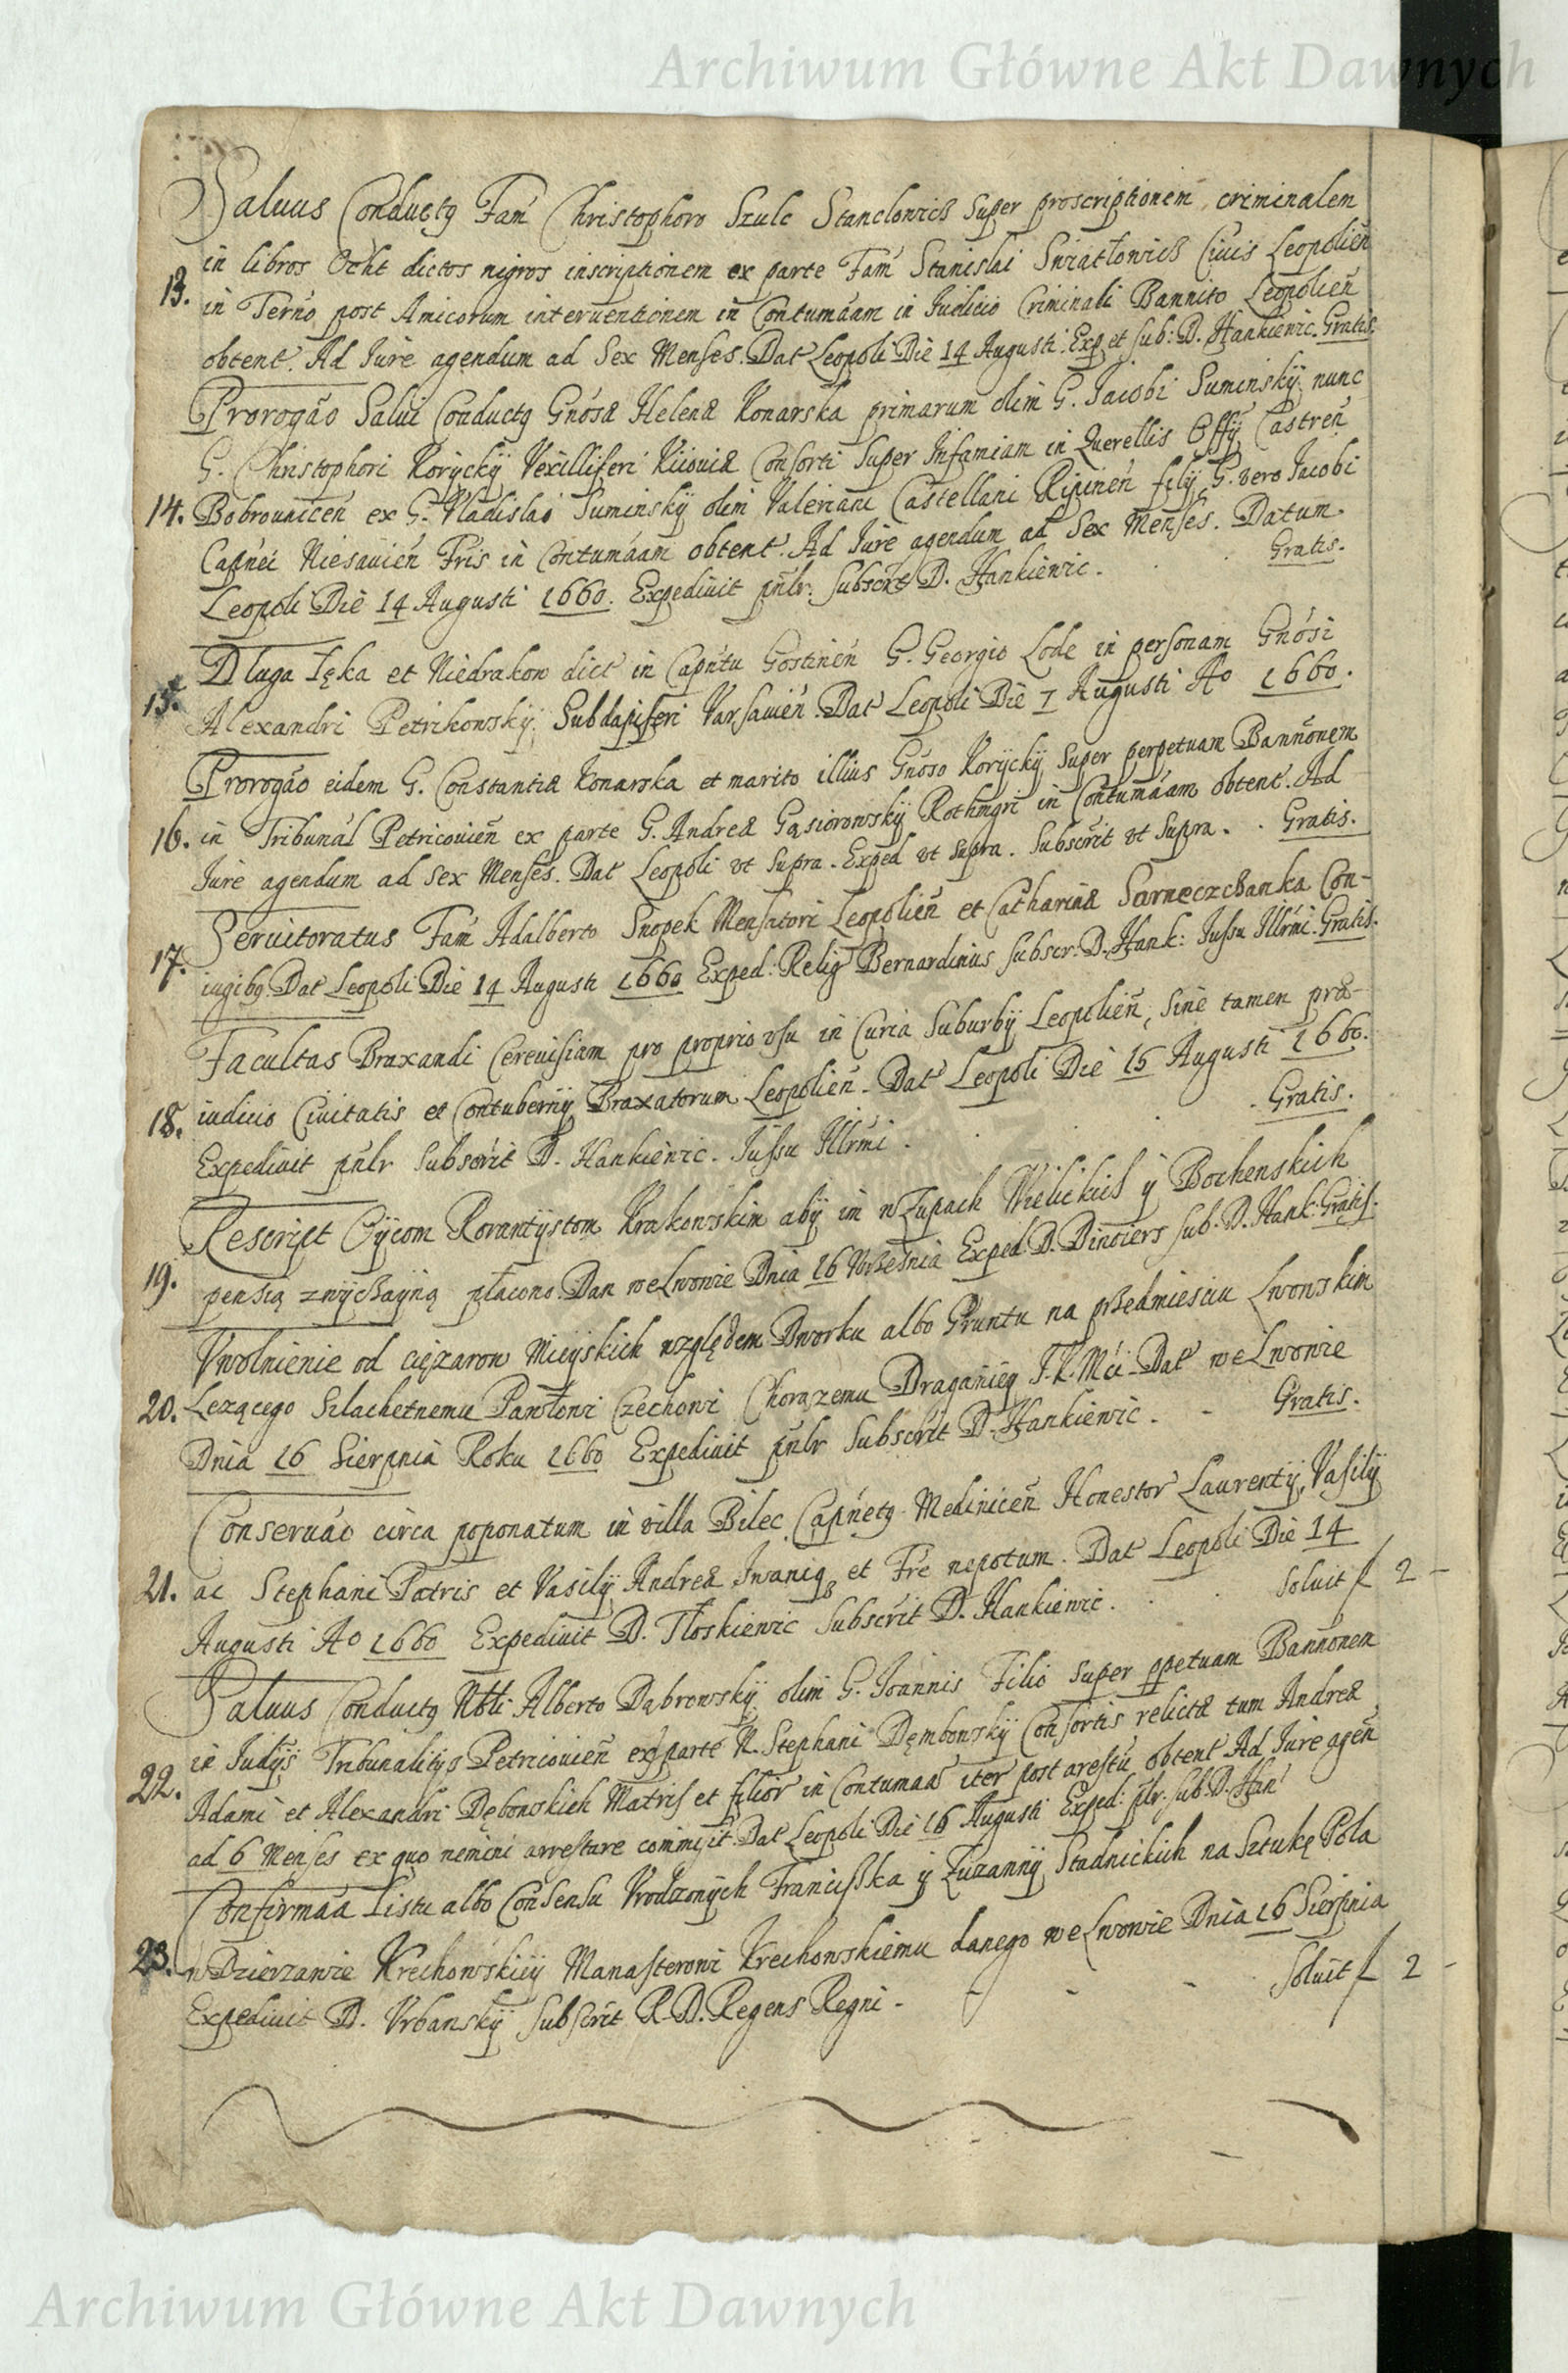 Archiwum Główne Akt Dawnych
Saluus Conductq Fam Christophoro Szulc Stanclowicz super proscriptionem criminalem
13. in libros dictos nigros inscriptionem ex parte Fam Stanislai Swiatłowicz Ciuis Leopolien
in Terno post Amicorum interuentionem in Contumaam in Iudicio Criminali Bannito Leopolien
obtent. Ad Iure agendum ad Sex Menses. Dat Leopoli Die 14 Augusti. Exp et sub: D. Hankiewic. Gratis.
Prorogao Salui Conductq Gnosæ Helenæ Konarska primarum olim G. Iacobi Suminskÿ nunc
G. Christophori Korÿckÿ Vexilliferi Kiiouiæ Consorti super Infamiam in Querellis Offÿ Castren
14. Bobrounicen ex G. Vladislao Suminskÿ olim Valeriani Castellani Ripinen filÿ, G. vero Iacobi
Capnei Niesauien Fris in Contumaam obtent. Ad Iure agendum ad Sex Menses. Datum
Leopoli Die 14 Augusti 1660. Expediuit pnlr. Subscrt D. Hankiewic. Gratis.
15. Dluga Łęka et Niedrakow dict in Capntu Gostinen G. Georgio Lode in personam Gnosi
Alexandri Petrikowskÿ. Subdapiferi Varsauien. Dat Leopoli Die 7 Augusti Ao 1660.
Prorogao eidem G. Constantiæ Konarska et marito illius Gnoso Korÿckÿ super perpetuam Bannonem
16. in Tribunal Petricouien ex parte G. Andreæ Gąsiorowskÿ Rothmgri in Contumaam obtent. Ad
Iure agendum ad sex Menses. Dat Leopoli vt supra. Exped vt supra. Subscrit vt Supra. Gratis.
17. Seruitoratus Fam Adalberto Snopek Mensatori Leopolien et Catharinæ Sarneczczanka Con-
iugibq. Dat Leopoli Die 14 Augusti 1660 Exped: Relig Bernardinus subscr: D. Hank: Iussu Illrmi. Gratis.
Facultas Braxandi Cereuisiam pro proprio vsu in Curia Suburbÿ Leopolien, sine tamen præ-
18. iudicio Ciuitatis et Contubernÿ Braxatorum Leopolien. Dat Leopoli Die 15 Augusti 1660.
Expediuit pnlr Subscrit D. Hankiewic. Iussu Illrmi. Gratis.
Rescript Oÿcom Rorantÿstom Krakowskim abÿ im w Zupach Wielickich ÿ Bochenskich
19. pensią zwÿczaÿną płacono. Dan we Lwowie Dnia 16 Wrzesnia Exped D. Dinoiers sub. D. Hank. Gratis.
Vwolnienie od cięzarow Mieÿskich względem Dworku albo Gruntu na przedmiesciu Lwowskim
20. Lezącego Szlachetnemu Pawłowi Czechowi Chorązemu Draganieÿ J.K.Mci. Dat we Lwowie
Dnia 16 Sierpnia Roku 1660 Expediuit pnlr Subscrit D. Hankiewic. Gratis.
Conseruao circa poponatum in villa Bilec Capnetq Medinicen Honestor Laurentÿ, Vasilÿ
21. ac Stephani Patris et Vasilÿ Andreæ Iwaniq et Fre nepotum. Dat Leopoli Die 14
Augusti Ao 1660 Expediuit D. Tłoskiewic Subscrit D. Hankiewic. Soluit f 2 -
Saluus Conductq Nbli Alberto Dąbrowskÿ olim G. Ioannis Filio super ppetuam Bannonem
22. in Iudÿs Tribunalitÿs Petricouien ex parte N. Stephani Dęmbowskÿ Consortis relictæ tum Andreæ
Adami et Alexandri Dębowskich Matris et filior in Contumaa iter post arestu obtent Ad Iure agen
ad 6 Menses ex quo nemini arrestare commisit. Dat Leopoli Die 16 Augusti Exped: plr. sub. D. Han
Confirmaa Listu albo Consensu Vrodzonÿch Franciszka ÿ Zuzannÿ Stadnickich na Sztukę Pola
23. w Dzierzawie Krechowskieÿ Manasterowi Krechowskiemu danego we Lwowie Dnia 16 Sierpnia
Expediuit D. Vrbanskÿ Subscrit R.D. Regens Regni. Soluit f 2 -
Archiwum Główne Akt Dawnych